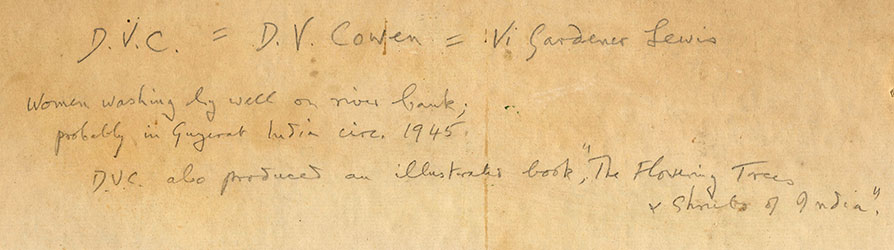 D.V.C. = D.V. Cowen = Vi Gardener Lewis
Women washing by well on river bank;
probably in Gujerat India circ. 1945.
D.V.C. also produced an illustrated book, "The Flowering Trees
& Shrubs of India".